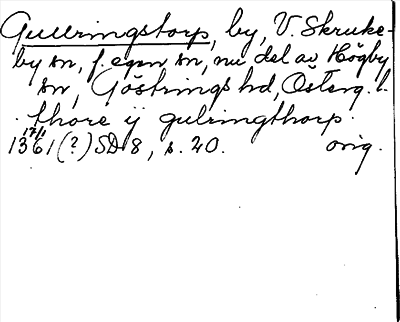 Gullringstorp, by, V. Skruke-
by sn, f. egen sn, nu del av Högby
sn, Göstrings hd, Österg. l.
thore ij gulringthorp.
17/1
1361 (?) SD 8, s. 20. orig.